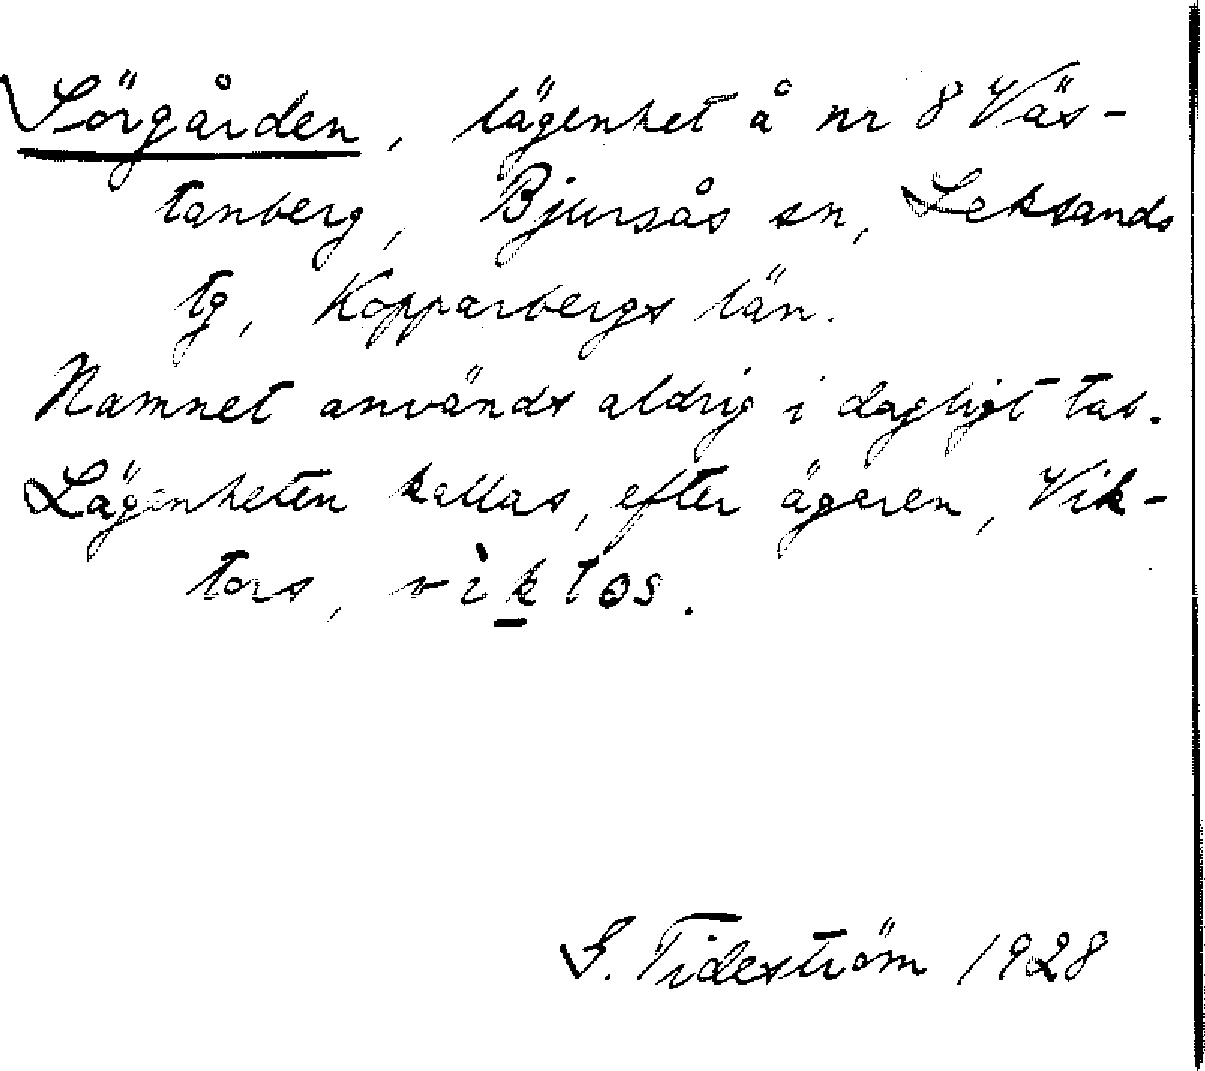 Sörgården, lägenhet å nr 8 Väs-
tanberg, Bjursås sn, Leksands
tg, Kopparbergs län.
Namnet används aldrig i dagligt tal.
Lägenheten kallas, efter ägaren, Vik-
tors, vìktos.
G. Tideström 1928